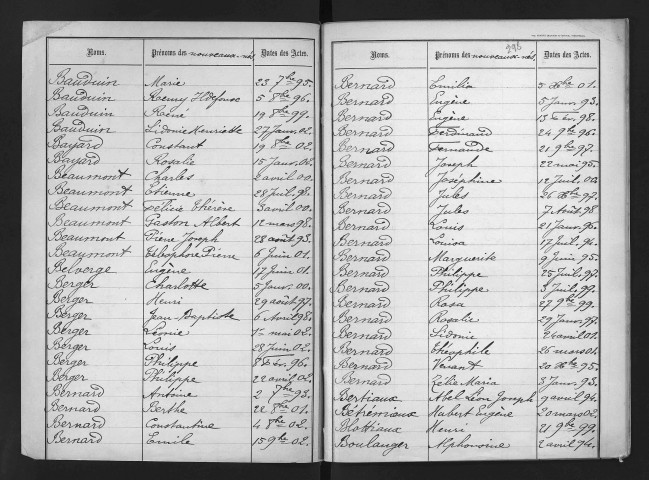 Noms. Prénoms des nouveaux-nés. Dates des Actes.
Bauduin Marie 23 7bre 95.
Bauduin Rémy Ildefonse 5 8bre 96.
Bauduin 19 8bre 99.
Bauduin Sidonie Henriette 27 Janv. 02.
Bayard Constant 19 8bre 02.
Bayard Rosalie 15 Janv. 01.
Beaumont Charles avril 00.
Beaumont Etienne 28 Juil. 98.
Beaumont Félicie Thérèse 3 avril 00.
Beaumont Gaston Albert 12 mars 98.
Beaumont Pierre Joseph 28 août 93.
Beaumont Télesphore Pierre 6 Juin 01.
Belverge Eugène 17 Juin 01.
Berger Charlotte 5 Janv. 00.
Berger Henri 29 août 97.
Berger Jean Baptiste 6 Avril 98.
Berger Léonie mai 02.
Berger Louis 28 Juin 02.
Berger Philippe 8 Fév. 96.
Berger Philippe 22 avril 02.
Bernard Antoine 2 7bre 93.
Bernard Berthe 22 8bre 01.
Bernard Constantine 4 8bre 02.
Bernard Emile 15 9bre 02.
298
Noms. Prénoms des nouveaux-nés. Dates des Actes.
Bernard Emilia 5 Xbre 01.
Bernard Eugène 5 Janv. 93.
Bernard Eugène 13 Fév. 98.
Bernard Ferdinand 24 9bre 96.
Bernard Fernande 21 9bre 97.
Bernard Joseph 22 mai 95.
Bernard Joséphine 12 Juil. 00.
Bernard Jules 26 Xbre 97.
Bernard Jules 7 Août 98
Bernard Louis 21 Janv. 96.
Bernard Louisa 17 Juil. 94.
Bernard Marguerite 9 Juin 95.
Bernard Philippe 25 Juil. 97.
Bernard Philippe 3 Juil. 99.
Bernard Rosa 27 9bre 99.
Bernard Rosalie 29 Janv. 99.
Bernard Sidonie 24 avril 01.
Bernard Théophile 26 mars 01.
Bernard Venant 20 Xbre 95.
Bernard Zélie Maria 3 Janv. 93.
Bertiaux Abel Léon Joseph 9 avril 94.
Bétrémieux Hubert Eugène 20 mars 02.
Blottiaux Henri 21 9bre 99.
Boulanger Alphonsine 2 avril 94.